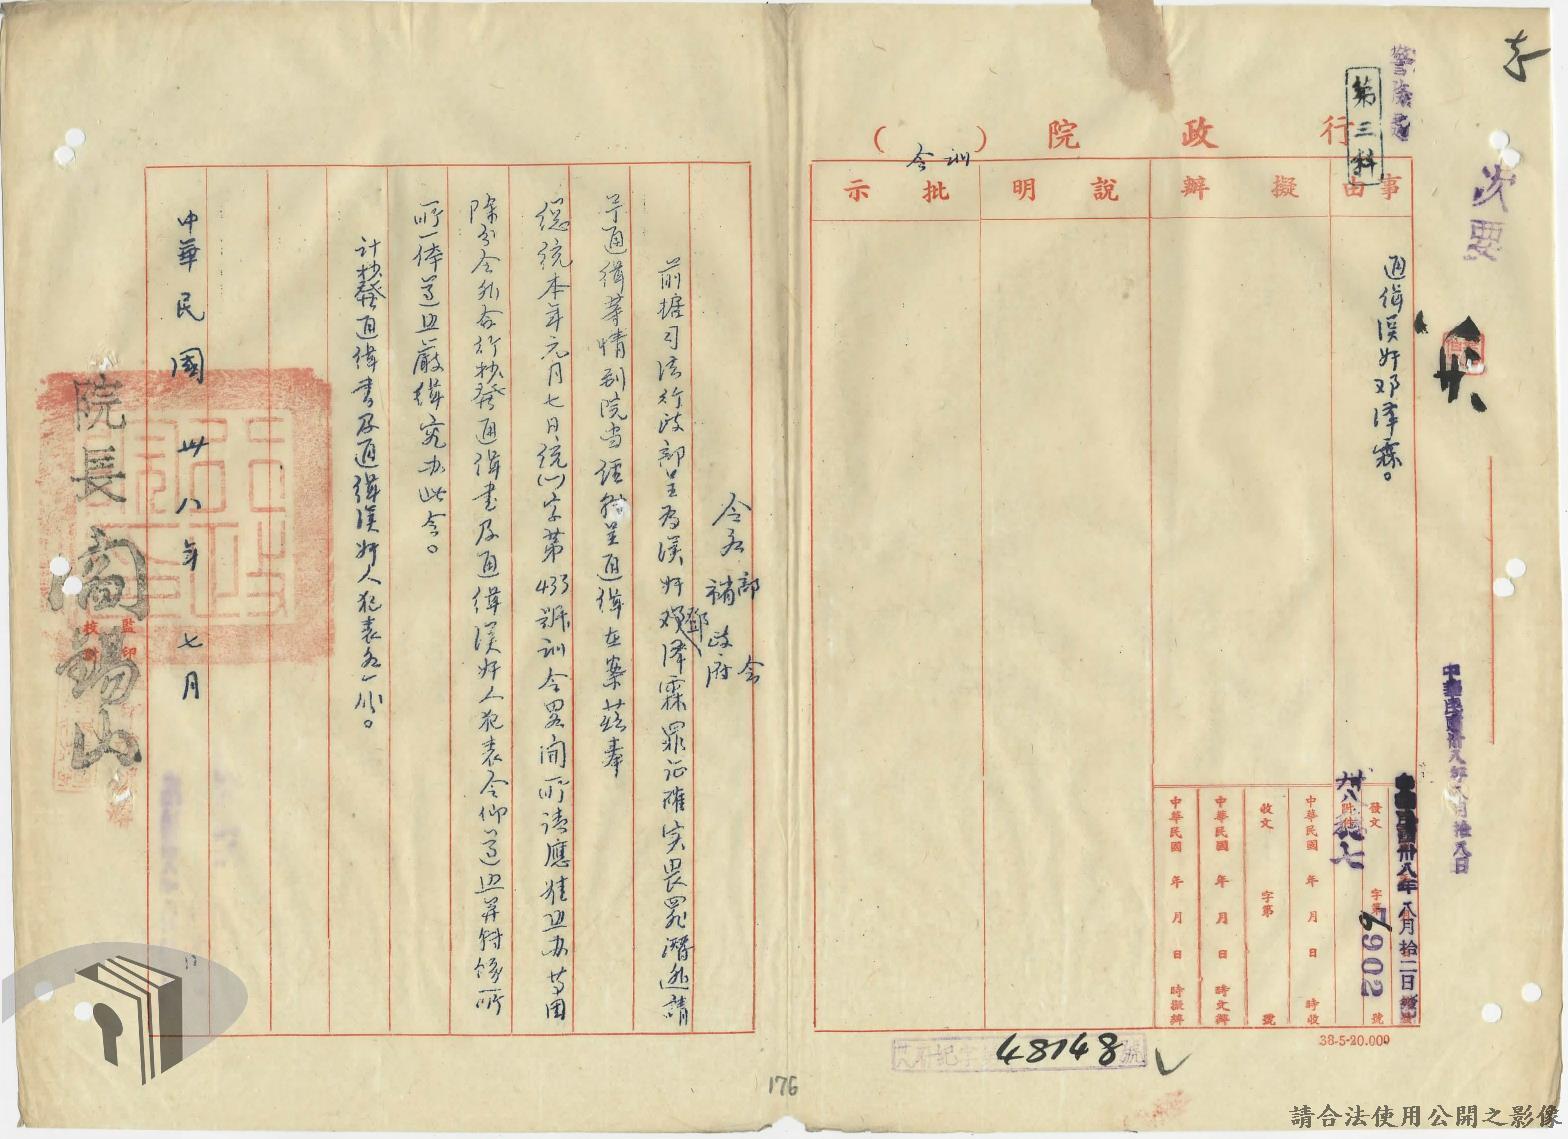 存
次要
警務處
第三科
行政院（訓令）
事由
擬辦
說明
批示
通緝漢奸邓澤霖。
中華民國卅八年八月拾八日
中華民國卅八年八月拾二日
發文 字第 7902 號
卅八 穗七
附件
中華民國 年 月 日 時收
收文 字第 號
中華民國 年 月 日 時交辦
中華民國 年 月 日 時擬辦
38-5-20.000
48148 號
令各部會
省政府
前據司法行政部呈為漢奸鄧澤霖罪证確实畏罪潛逃請
予通緝等情到院当經轉呈通緝在案茲奉
總統本年元月七日統(一)字第433號訓令畧開所請應准照办等因
除分令外合行抄發通緝書及通緝漢奸人犯表令仰遵照并转飭所
所一体遵照嚴緝究办此令。
計抄發通緝書及通緝漢奸人犯表各一份。
中華民國卅八年七月
院長閻錫山
監印
校對
176
請合法使用公開之影像